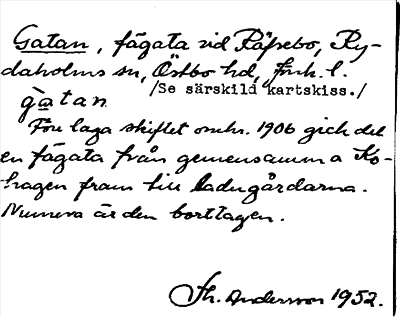 Gatan, fägata vid Räfsebo, Ry-
daholms sn, Östbo hd, Jönk. l.
/Se särskild kartskiss./
gatan
Före laga skiftet omkr. 1906 gick det
en fägata från gemensamma Ko-
hagen fram till ladugårdarna.
Numera är den borttagen.
Th. Andersson 1952.